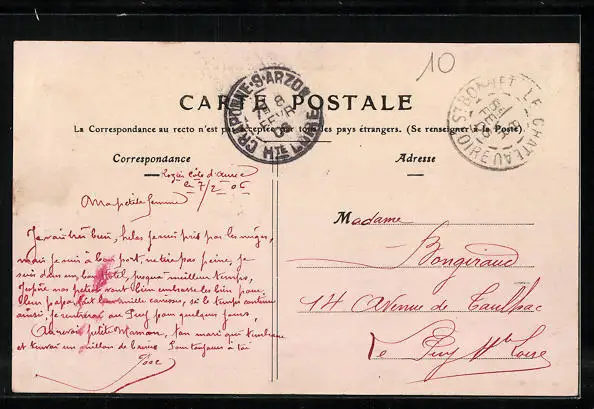 10
CRAPONNE-S-ARZON
8
FEVR
06
HTE LOIRE
ST BONNET LE CHATEAU
LOIRE
CARTE POSTALE
La Correspondance au recto n'est pas acceptée par tous les pays étrangers. (Se renseigner à la Poste).
Correspondance
Adresse
le 7/2 06
Ma petite femme
Je vais très bien, hélas je suis pris par les neiges,
mais je suis à bon port, ne t'en fais peine, je
suis dans un bon hôtel, jusqu'à meilleur temps,
J'espère nos petits vont bien embrasse les bien pour
leur papa et mille caresses, si le temps continue
ainsi je rentrerai au Puy pour quelques jours,
Au revoir petite Maman, ton mari qui t'embrasse
et t'envoi un million de baisers Pour toujours à toi
Madame
Bongiraud
14 Avenue de Taulhac
Le Puy Hte Loire